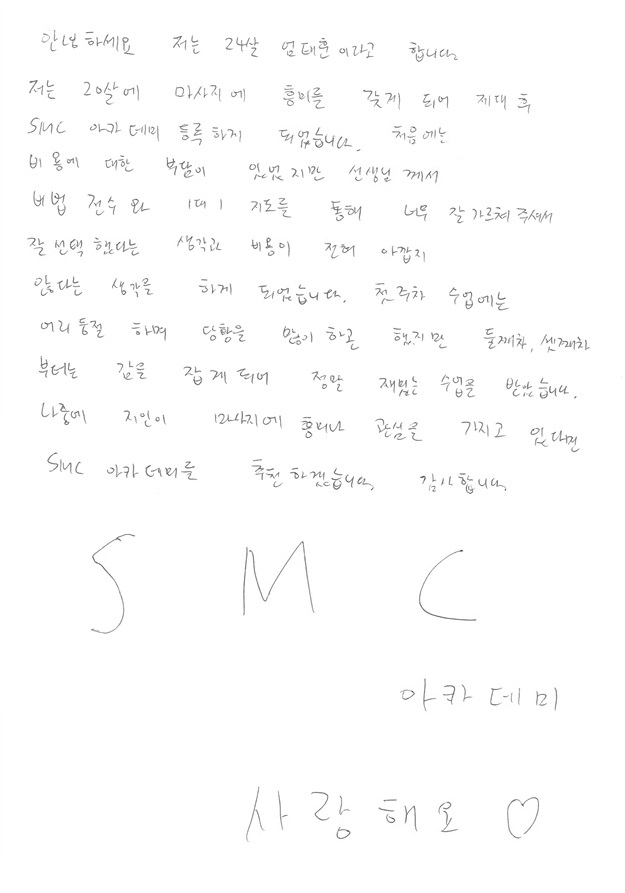 안녕하세요 저는 24살 엄태훈이라고 합니다.
저는 20살에 마사지에 흥미를 갖게 되어 제대 후
SMC 아카데미 등록하게 되었습니다. 처음에는
비용에 대한 부담이 있었지만 선생님께서
비법 전수와 1대1 지도를 통해 너무 잘 가르쳐 주셔서
잘 선택했다는 생각과 비용이 전혀 아깝지
않다는 생각를 하게 되었습니다. 첫주차 수업에는
어리둥절 하며 당황을 많이 하곤 했지만 둘째차, 셋째차
부터는 감을 잡게 되어 정말 재밌는 수업을 받았습니다.
나중에 지인이 마사지에 흥미나 관심을 가지고 있다면
SMC 아카데미를 추천 하겠습니다. 감사합니다.
S M C
아카데미
사랑해요 ♡